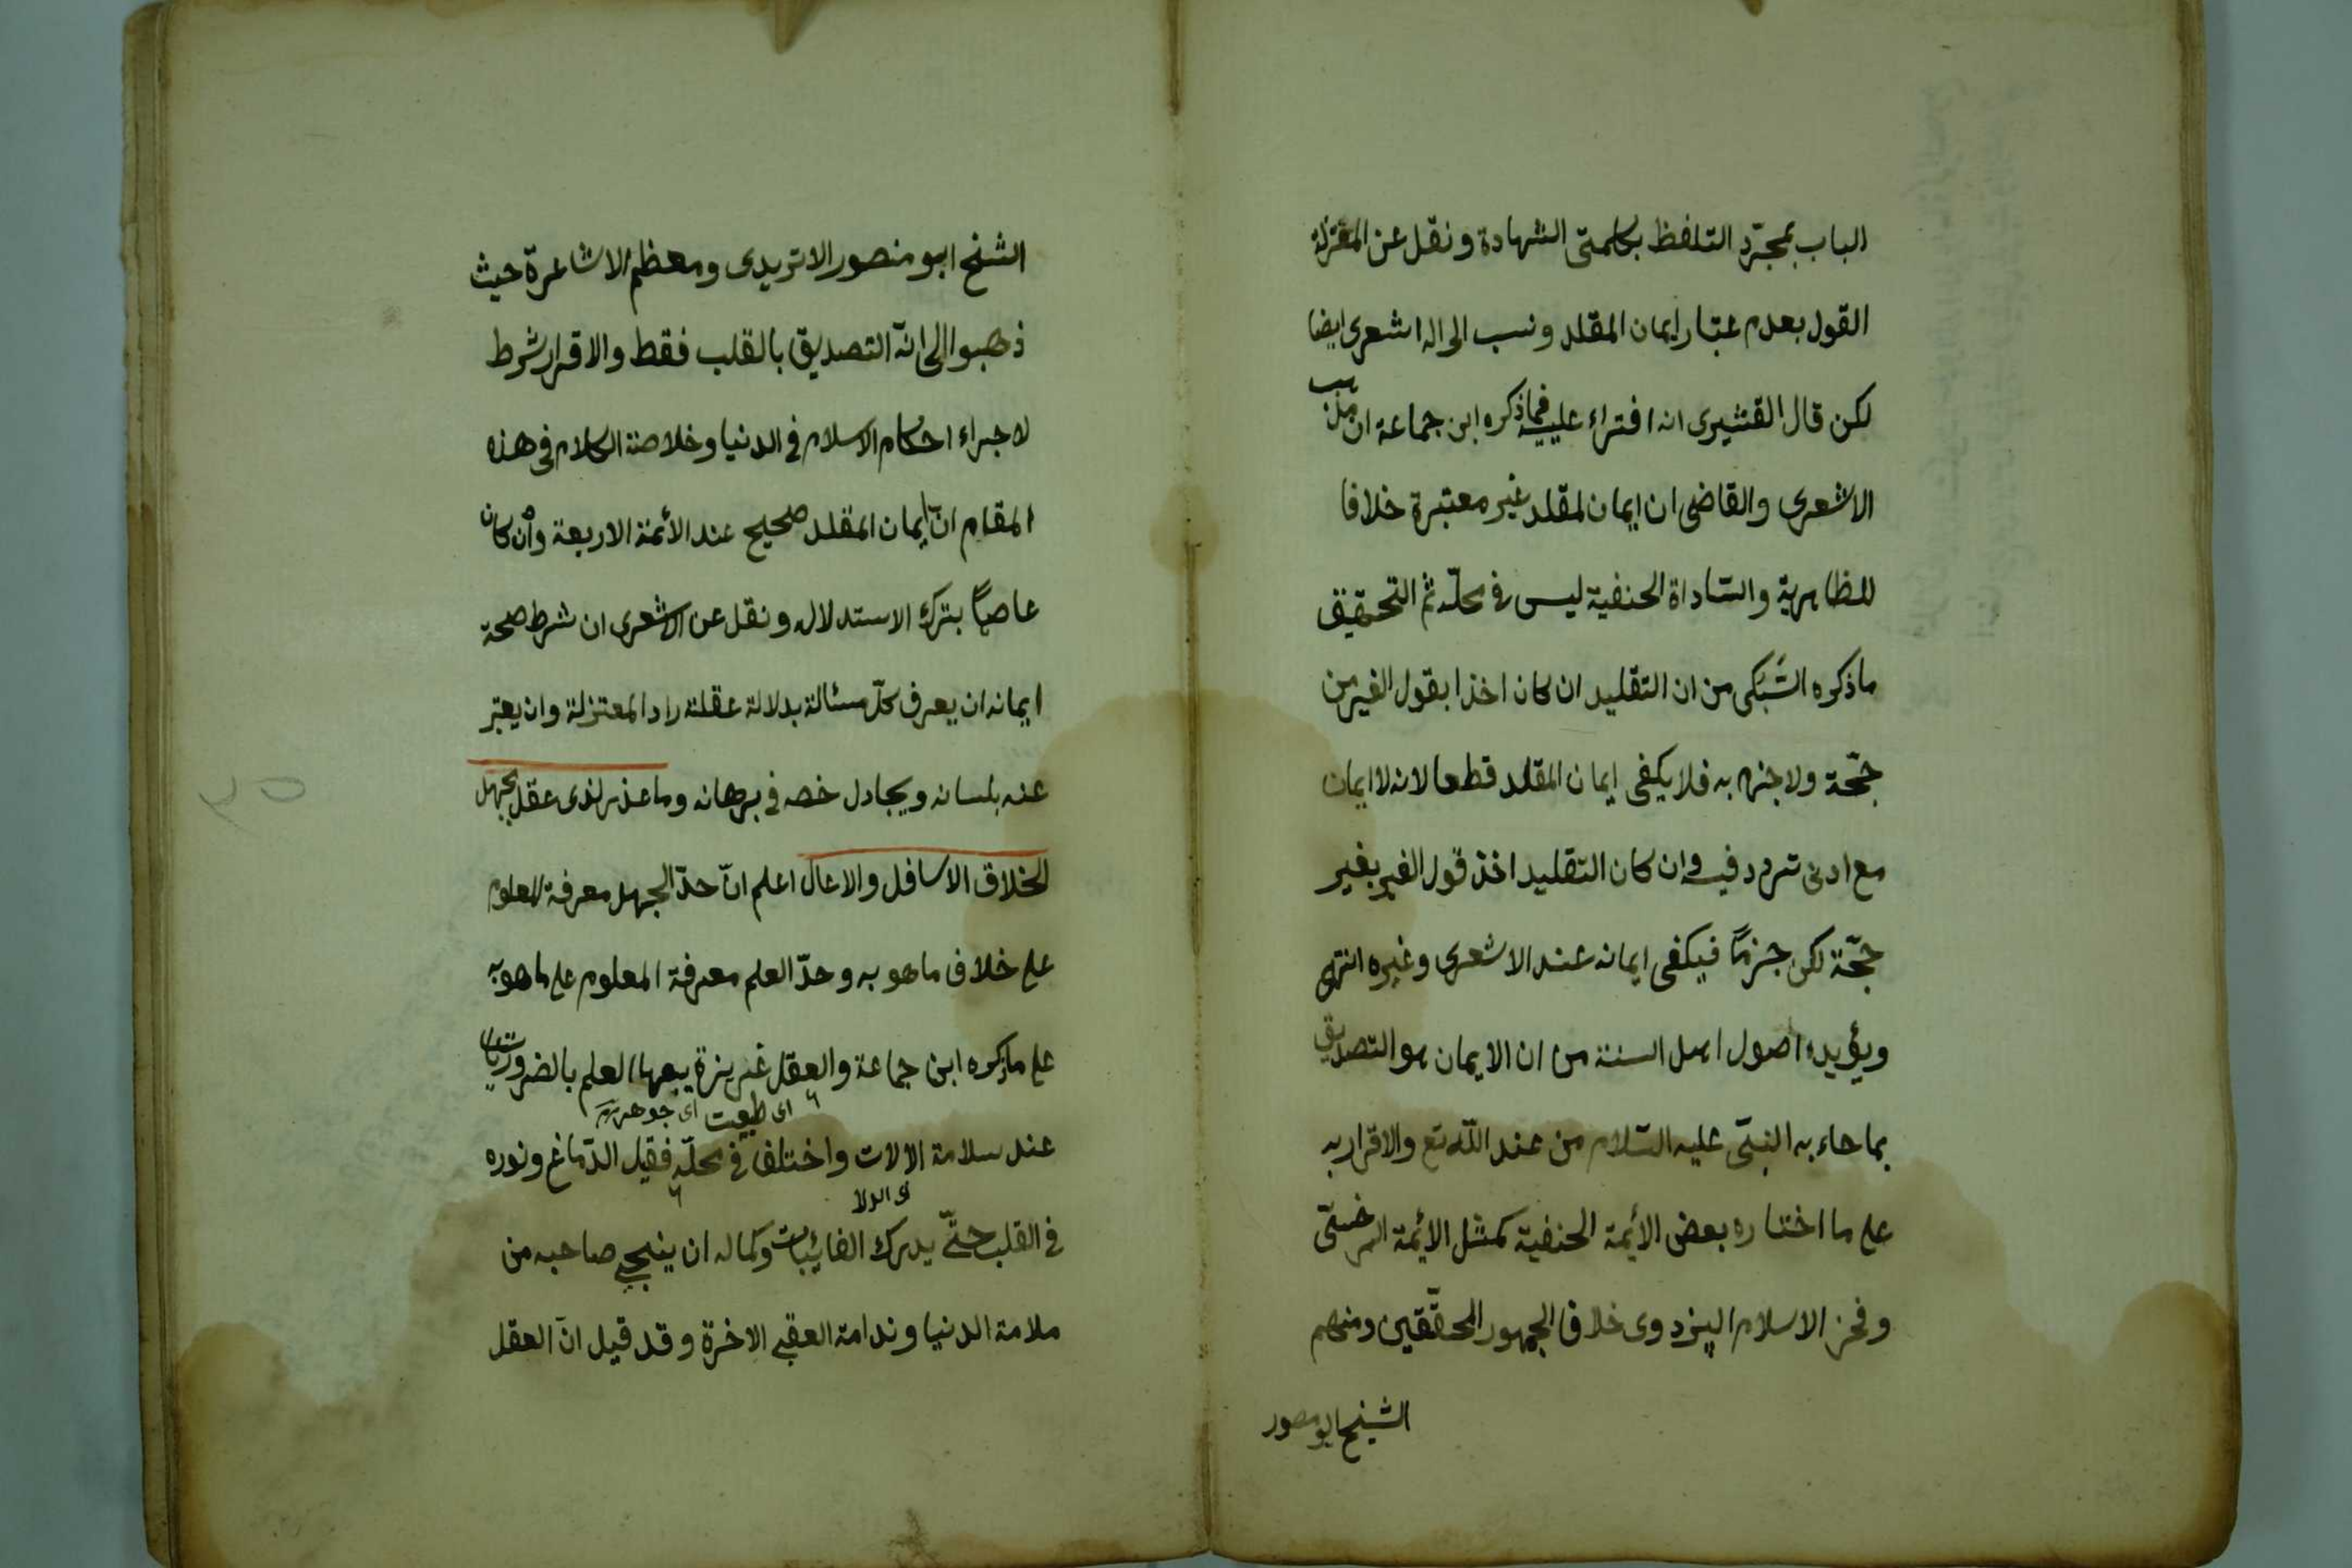 الباب بمجرّد التلفظ بكلمتى الشهادة ونقل عن المعتزلة
القول بعدم عتبار ايمان المقلد ونسب الى الاشعرى ايضا
لكن قال القشيرى انه افتراء عليه فيما ذكره ابن جماعة ان مذهب
الاشعرى والقاضى ان ايمان لمقلد غير معتبرة خلافا
للظاهرية والسّاداة الحنفية ليس فى محلّه ثم التحقيق
ماذكره السُّبَكى من ان التقليد ان كان اخذا بقول الغير من
حجّة ولاجزم به فلا يكفى ايمان المقلد قطعا لانه لا ايمان
مع ادنى تردد فيه وان كان التقليد اخذ قول الغير بغير
حجّة لكن جزمًا فيكفى ايمانه عند الاشعرى وغيره انتهى
ويؤيده اصول اهل السنة من ان الايمان هو التصديق
بما جاء به النبىّ عليه السّلام من عند اللّه تع والاقرار به
على ما اختاره بعض الأيمة الحنفية كمشل الأيمة السرخسىّ
وفخر الاسلام البزدوى خلافا الجمهور المحقّقين ومنهم
الشيخ ابو منصور
الشيخ ابو منصور الاتريدى ومعظم الاشاعرة حيث
ذهبوا الى انّه التصديق بالقلب فقط والاقرار شرط
لاجراء احكام الاسلام فى الدنيا وخلاصة الكلام فى هذه
المقام انّ ايمان المقلد صحيح عند الأئمة الاربعة وأن كان
عاصيًا بترك الاستدلال ونقل عن الاشعرى ان شرط صحة
ايمانه ان يعرف كلّ مسئالة بدلالة عقلته راد المعتزلة وان يعبّر
عنه بلسانه ويجادل خصه فى برهانه وما عذر لذى عقل بجهل
الخلاق الاسافل والاعال اعلم انّ حدّ الجهل معرفة المعلوم
على خلاف ما هو به وحدّ العلم معرفة المعلوم على ما هو به
على ماذكره ابن جماعة والعقل غريزة يبعها العلم بالضروريّات
اى طبعت اى جوهرية
عند سلامة الالات واختلف فى محلّه فقيل الدّماغ ونوره
فى القلب حتّى يدرك الغايبات وكماله ان ينجى صاحبه من
ملامة الدنيا وندامة العقبى الاخرة وقد قيل انّ العقل